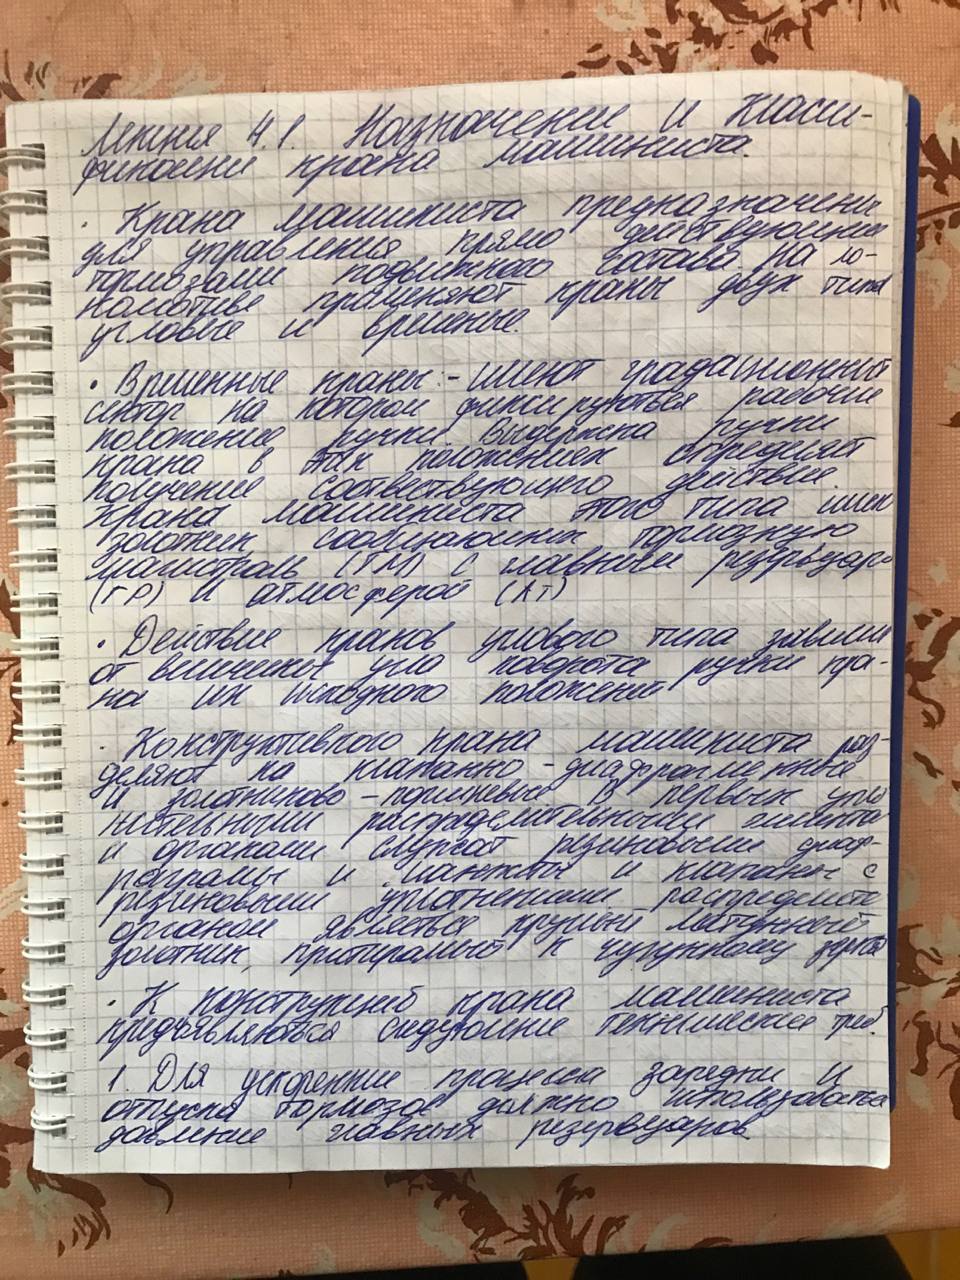 Лекция 4.1. Назначение и класси-
фикации крана машиниста.
· Крана машиниста предназначены
для управления прямо действующими
тормозами подвижного состава на ло-
комотиве применяют краны двух типа
угловые и временые.
· Временные краны:- имеют градационный
сектор на котором фиксируються рабочие
положение ручки. Выдержка ручки
крана в этих положениях определяет
получение соотвествующего действие.
Крана машиниста этого типа имеют
золотник сообщающих тормозную
магистраль (ТМ) с главным резервуаром
(ГР) и атмосферой (АТ)
· Действие кранов углового типа зависит
от величены угла поворота ручки кра-
на их исходного положения
· Конструктивного крана машиниста раз-
деляют на клапанно-диафрагменные
и золотниково-поршневые В первых упло
нительными распределительными
и органами служат резиновыми диаф-
рагмы и манжеты и клапаны с
резиновыми уплотнениями распределите
органом являеться круглый латунный
золотник, притираемый к чугунному зерка
· К конструкцией крана машиниста
предъявляються следующие технические треб.
1. Для ускорение процесса зарядки и
отпуска тормозов должно использоваться
давление главных резервуаров